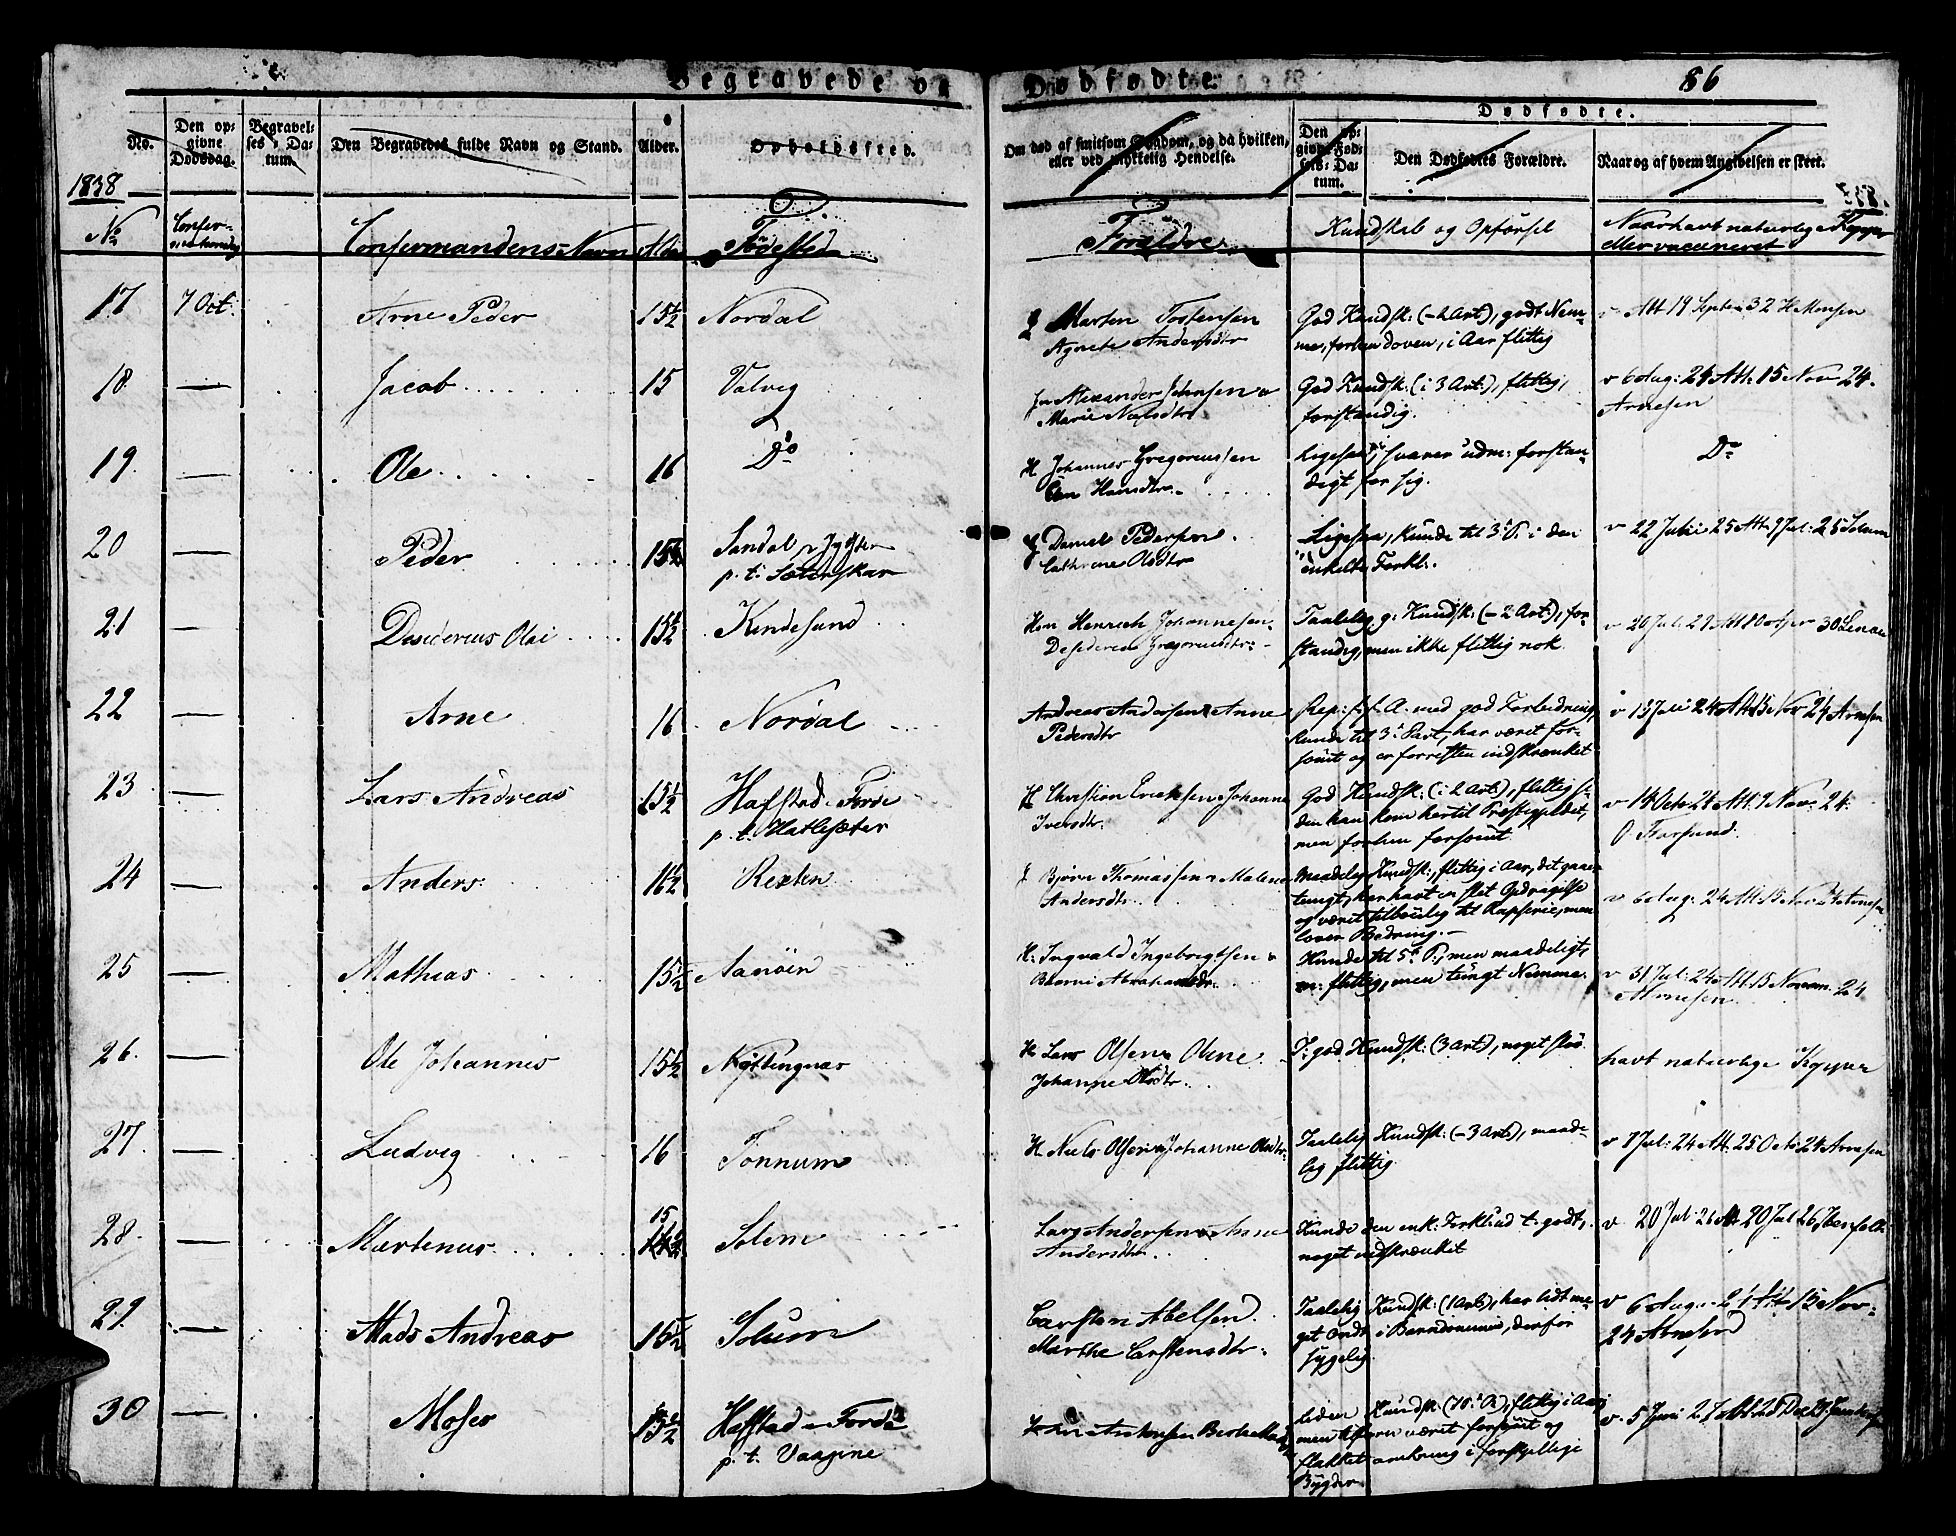 Begravede og Dødfødte.
86
No.
Den opgivne Dødsdag.
Begravelses-Datum.
Den Begravedes fulde Navn og Stand.
Alder.
Opholdssted.
Om død af smitsom Sygdom, og da hvilken, eller ved ulykkelig Hendelse.
Dødfødte.
Den opgivne Fødsels-Datum.
Den Dødfødtes Forældre.
Naar og af hvem Angivelsen er skeet.
1838
No
Confermandens Navn
Fødested
Forældre
Kundskab og Opførsel
Naar havt naturlige Kopper
eller vaccineret
17 7 Oct: Arne Peder 15½ Nordal
Marten Tostensen
Agnete Andersdtr
God Kundsk: (-2 Art), godt Nem-
me, forhen doven, i Aar flittig
v Att 19 Septr 32 H Monsen
18. — Jacob 15 Valvig
Alexander Johnsen
Marie
God Kundsk: (i 3 Art:), flittig,
forstandig.
v 6 Aug: 24 Att. 15 Nov 24.
Arnesen
19. — Ole 16 Do
H Johannes Gregoriussen
Hansdtr.
Ligesaa, svarer udm: forstan-
digt for sig.
Do
20 — Peder 15½ Sandal i Jølster
p. t. Sæterskar
Daniel Pedersen
Cathrine Olsdtr
Ligesaa, kunde til 3. P. i den
enkelte Forkl.
v 22 Juli 25 Att 9 Jul: 25
21 — Desiderius Olai 15½ Kindesund
Henrich Johannesen
Desideria Gregoriusdtr.
Taalelig g: Kundsk: (-2 Art:), for-
standig, men ikke flittig nok.
v 20 Jul: 29 Att 30
22 — Arne 16 Nordal
Andreas Andersen Anne
Pedersdtr
Rep: f. f. A. med god Forledning,
kunde til 3. Part, har været for-
sømt og er forresten indskrænket
v 13 Juli 24 Att 15 Nov 24 Arnesen
23 — Lars Andreas 15½ Hafstad i Førde
p. t. Hatlesæter
H Christian Ericksen Johanne
Iversdtr.
God Kundsk: (i 2 Art), flittig si-
den han kom hertil Præstegjeldet,
men forhen forsømt
v 14 Octr 24 Att. 9 Nov. 24.
24 — Anders 16½ Resten
Bjørn Thomassen Malene
Andersdtr.
Maadelig Kundsk:, flittig i Aar, det gaaer
tungt, har havt en slet Opdragelse
og været tilbøielig til Rapserie, men
lover Bedring.
v 6 Aug: 24 Att 15 Nov 24 Arnesen
25 — Mathias 15½ Aanøen
H. Ingvald Ingebrigtsen
Abrahamsdtr.
Kunde til 5. P., men maadeligt,
m: flittig, men tungt Nemme.
v 31 Jul: 24 Att. 15 Novem. 24
Arnesen
26. — Ole Johannes 15½ Nyttingnæs
H Lars Olsen
Johanne Olsdtr.
T: god Kundsk: (3 Art), noget sløv
havt naturlige Kopper
27. — Ludvig 16 Tonnum
H Niels Olsen Johanne Olsdtr.
Taalelig Kundsk: (-3 Art), maade-
lig flittig.
v 9 Jul: 24 Att. 25 Octr 24 Arnesen
28. — Martinus 15 Solem
Lars Andersen Anne
Andersdtr.
Kunde den enk: Forkl: ud t: godt,
noget indskrænket
v. 20 Jul 26 Att 20 Jul 26
29. — Mads Andreas 16½ Solum
Carsten Abelsen
Marthe Carstensdtr.
Taalelig Kundsk: (1 Art), har lidt me-
get ondt i Barndommen, derfor
sygelig
v 6 Aug. 24 Att 15 Nov.
24 Arnesen
30 — Moses 15½ Hafstad i Førde
p. t. Vaagene
Liden Kundsk: flittig i Aar,
men tilforn været forsømt og
flakket omkring i forskjellige
Bygder
v. 5 Juni